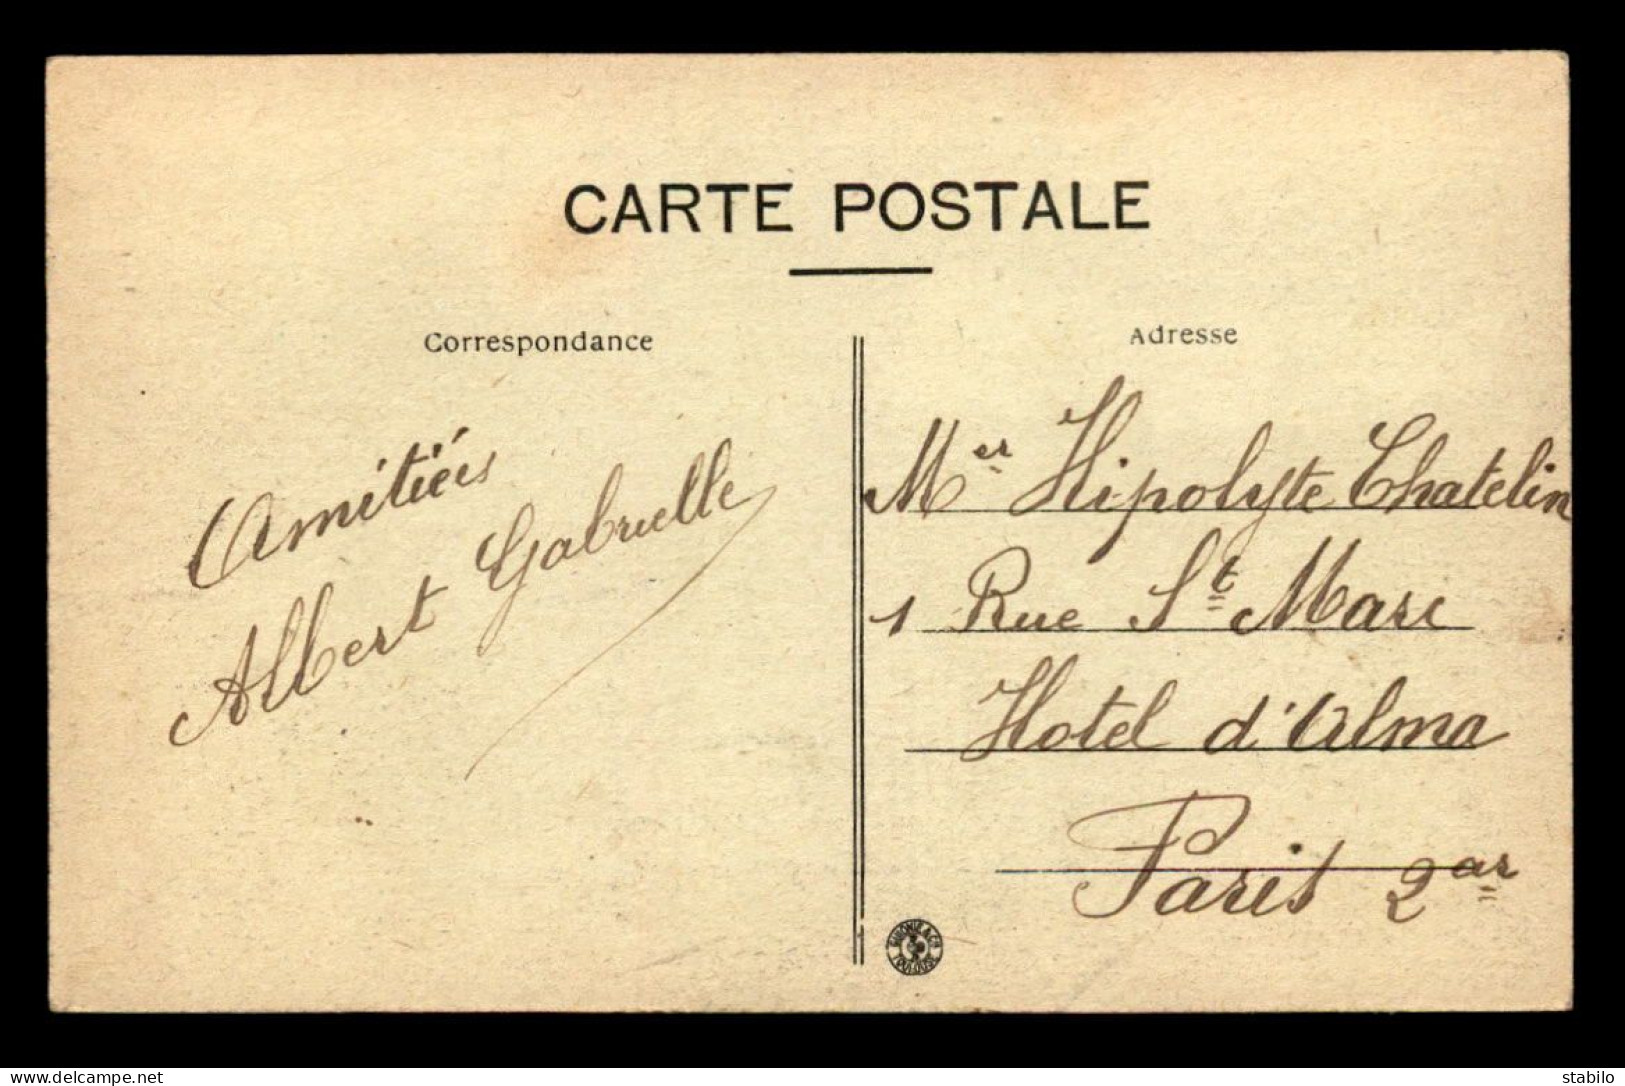 CARTE POSTALE
Correspondance
Amitiées
Albert Gabrielle
Adresse
Mer Hipolyte Chatelin
1 Rue St Marc
Hotel d'Alma
Paris 2ar
TOULOUSE
delcampe.net
stabilo